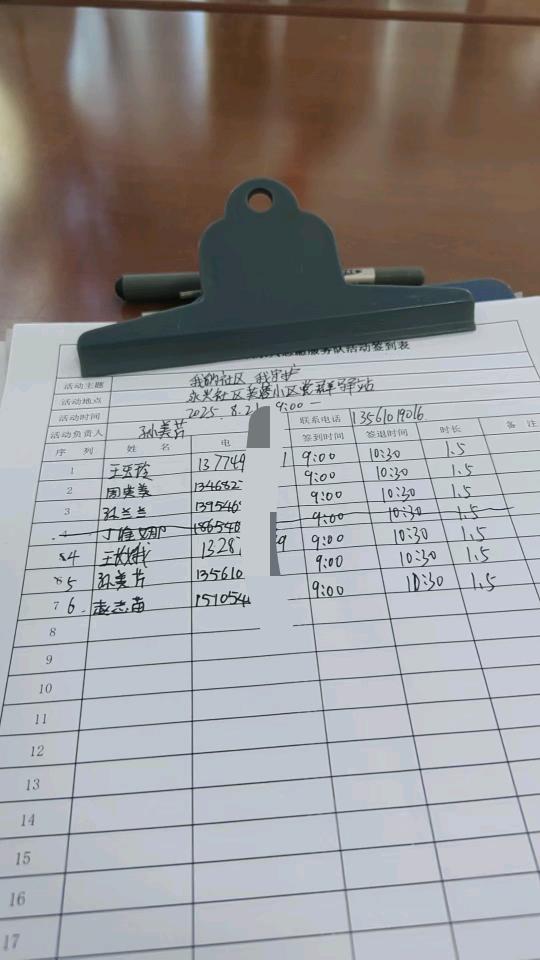 服务队活动签到表
活动主题 我的社区 我守护
活动地点 永兴社区芙蓉小区党群驿站
活动时间 2025.8.21 9:00—
活动负责人 孙美芹 联系电话 13561019016
序 列 姓 名 电 签到时间 签退时间 时长 备 注
1 王乐玲 137749 1 9:00 10:30 1.5
2 周建美 134682 9:00 10:30 1.5
3 孙兰兰 139546 9:00 10:30 1.5
4 186540 9:00 10:30 1.5
4 1328 9 9:00 10:30 1.5
5 孙美芹 135610 9:00 10:30 1.5
7 6 赵志苗 157054 9:00 10:30 1.5
8
9
10
11
12
13
14
15
16
17